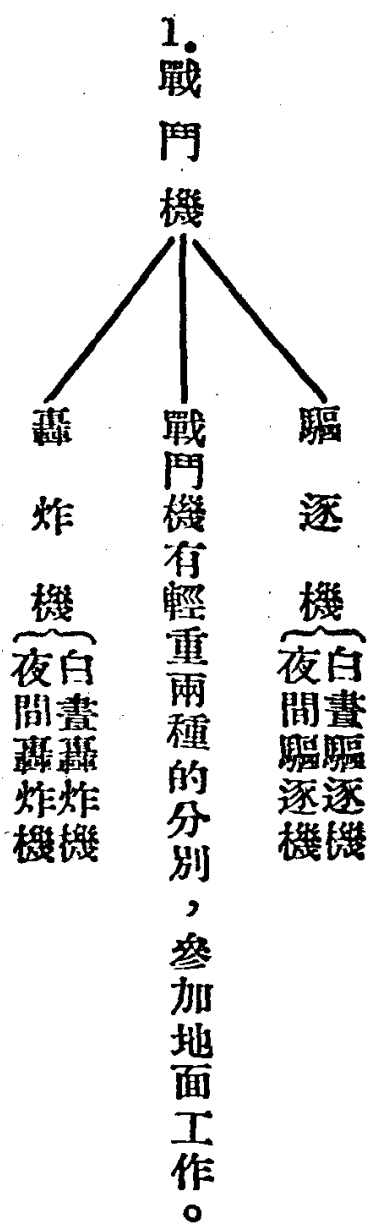 1.戰鬥機
驅逐機
白晝驅逐機
夜間驅逐機
戰鬥機有輕重兩種的分別，參加地面工作。
轟炸機
白晝轟炸機
夜間轟炸機